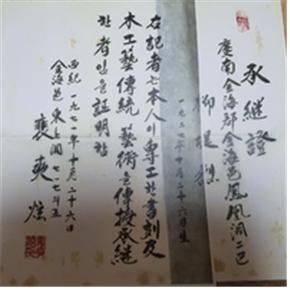 承継證
慶南金海郡金海邑鳳凰洞二区
柳
一九三七年十月二十六日生
右記者는本人이專工한書刻및
木工藝傳統藝術을傳授承継
한者임을証明함
西紀一九七一年十月二十六日
金海邑東上洞七七斗五
裵